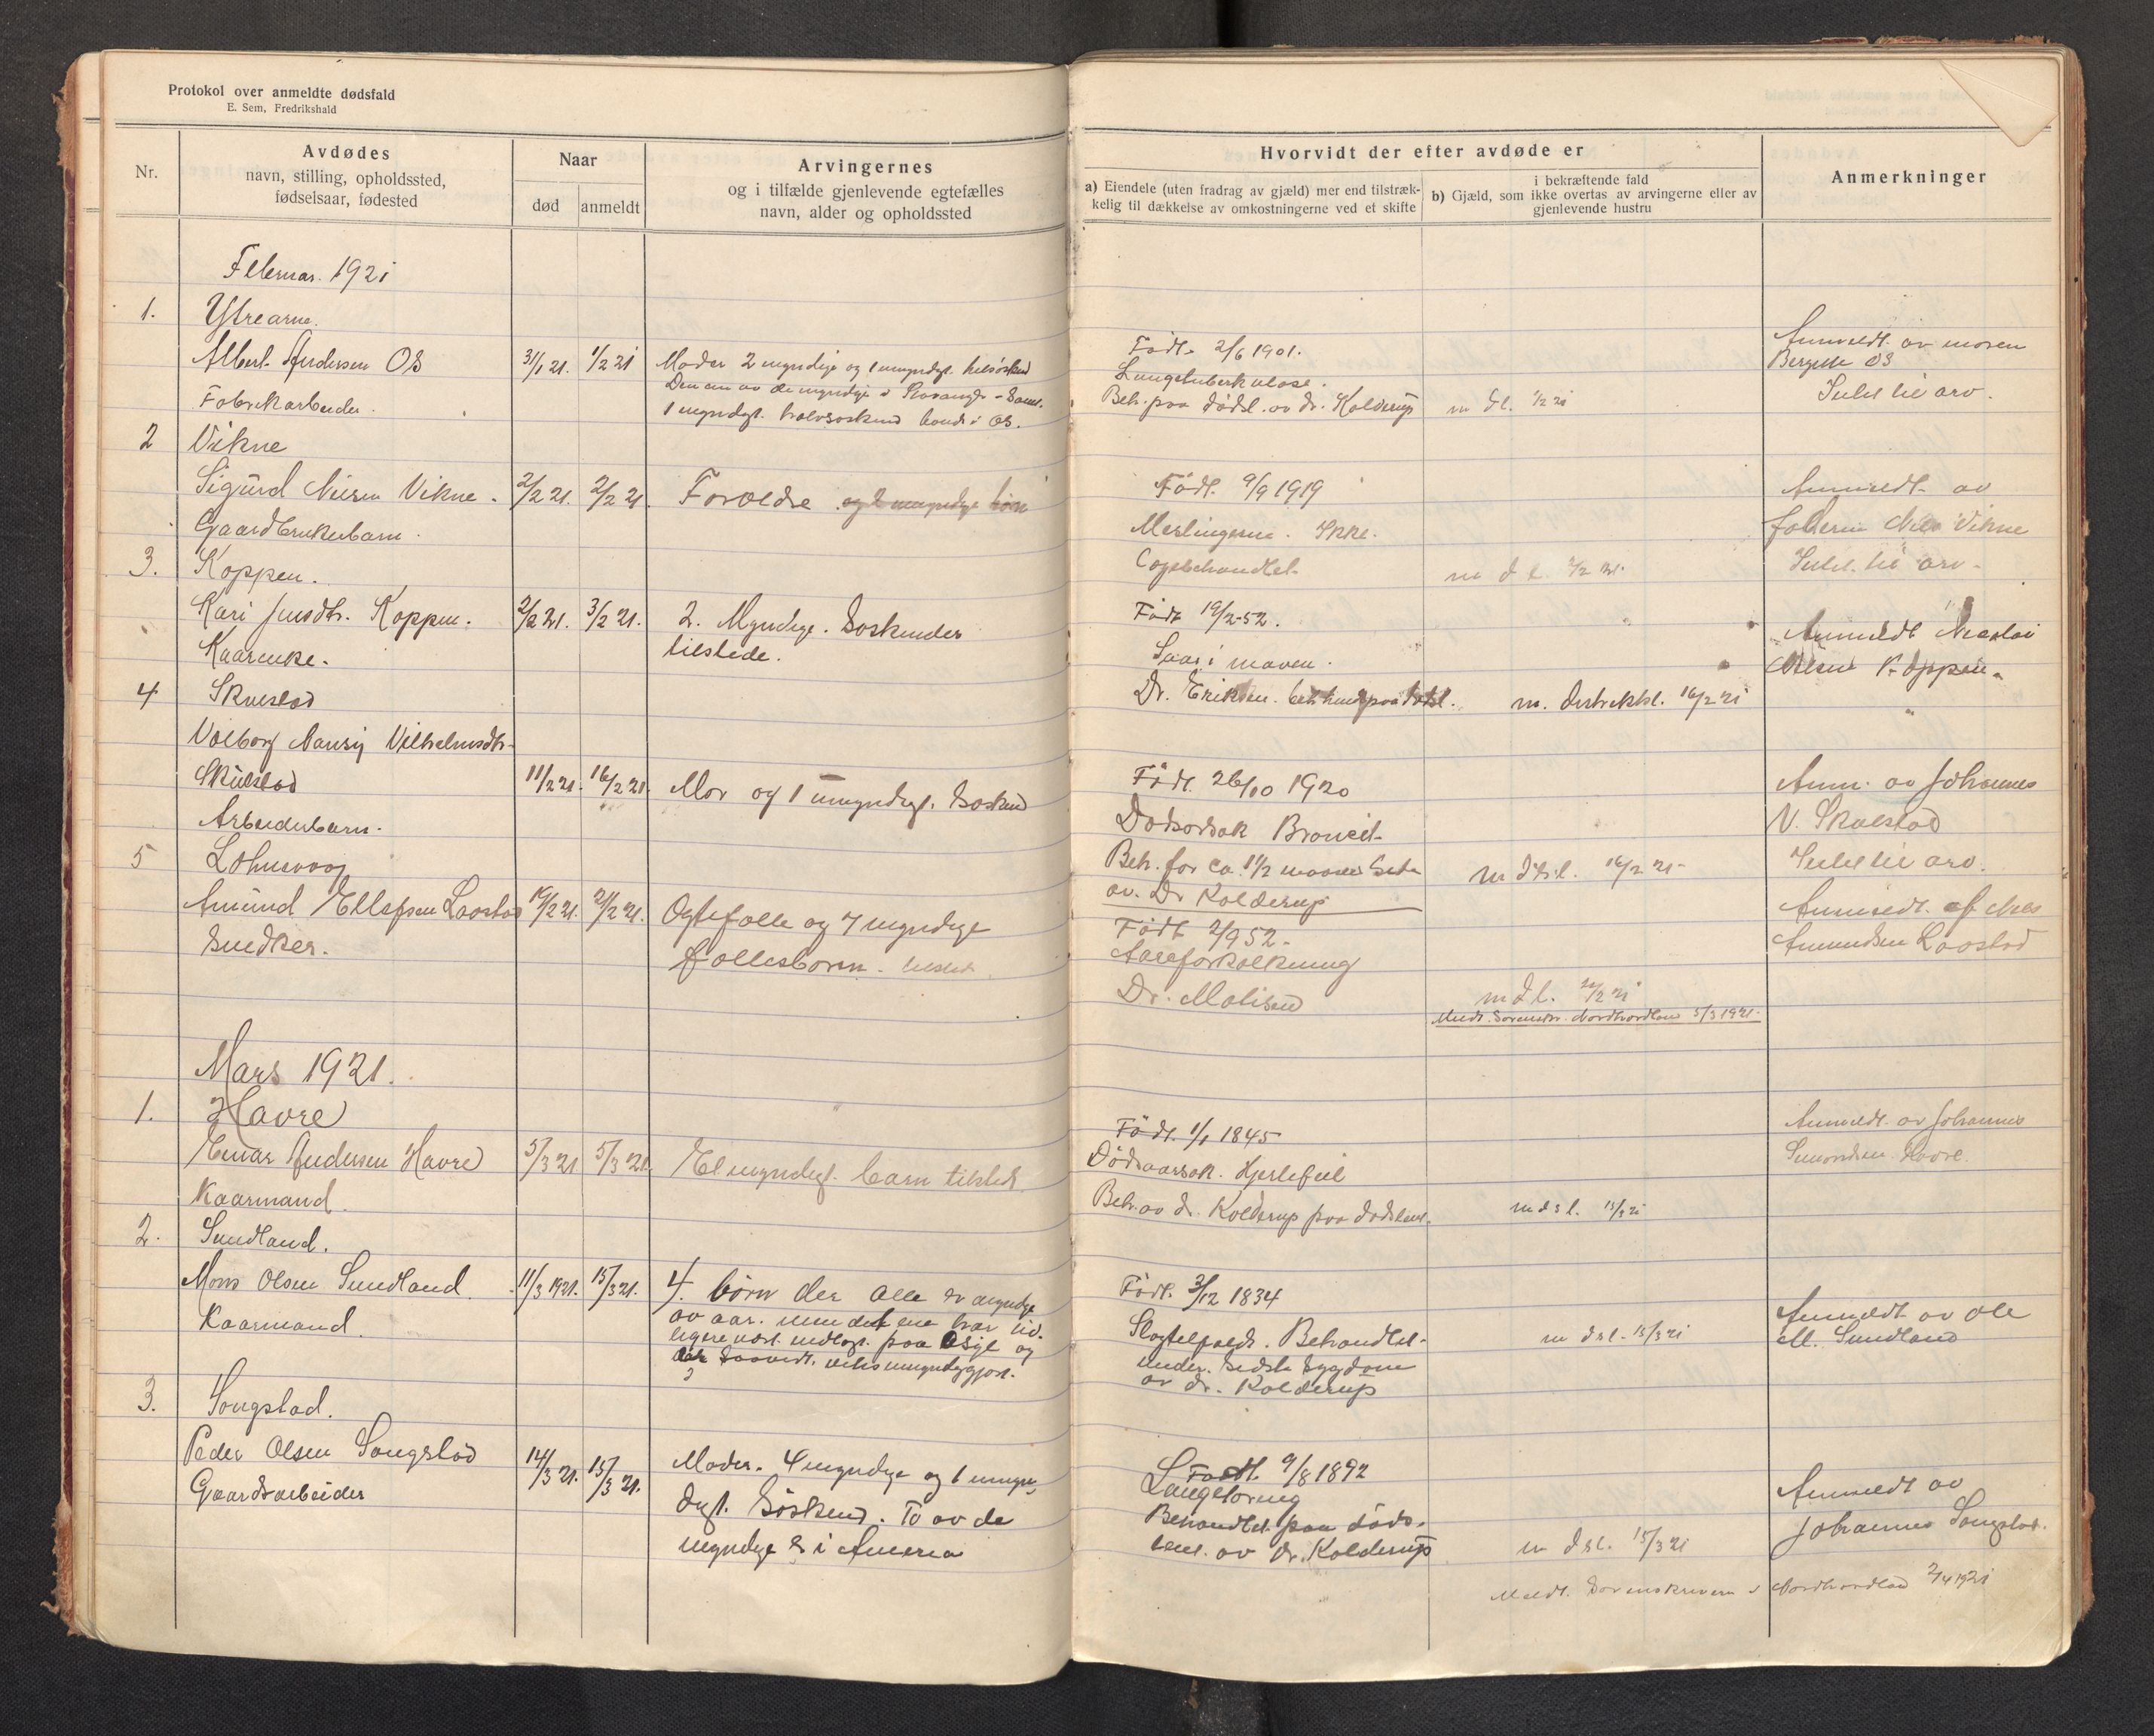 Protokol over anmeldte dødsfald
E. Sem, Fredrikshald
Nr.
Avdødes
navn, stilling, opholdssted,
fødselsaar, fødested
Naar
død
anmeldt
Arvingernes
og i tilfælde gjenlevende egtefælles
navn, alder og opholdssted
Hvorvidt der efter avdøde er
a) Eiendele (uten fradrag av gjæld) mer end tilstræk-
kelig til dækkelse av omkostningerne ved et skifte
i bekræftende fald
b) Gjæld, som ikke overtas av arvingerne eller av
gjenlevende hustru
Anmerkninger
Februar. 1921
1. Ytrearne.
Albert Andersen OS 31/1 21. 1/2 21 Moder 2 myndige og 1 umyndigt. helsøskend
Den ene av de myndige i
Fabrikarbeider.
1 myndigt. halvsøskend i OS.
Født. 2/6 1901.
Lungetuberkulose.
Beh. paa dødsl. av dr. Kolderup
m dl. 1/2 21
Anmeldt. av moren
OS
Intet til arv.
2 Vikne
Sigurd Nilsen Vikne. 2/2 21. 2/2 21. Forældre og 2 umyndige
Gaardbrukerbarn.
Født. 9/9 1919
Meslingerne. Ikke
lægebehandlet.
m d l. 2/2 21.
Anmeldt av
faderen Nils Vikne
Intet til arv.
3. Koppen.
Kari Jensdtr. Koppen. 2/2 21. 3/2 21. 2. Myndige. Søskender
tilstede.
Kaarenke.
Født 19/2-52.
Saar i maven.
Dr. Eriksen. paa dødsl.
m. distriktsl. 16/2 21
Anmeldt Nicolai
Nilsen Koppen.
4 Skulstad
Valborg Nansy Vilhelmsdtr.
Skulstad 11/2 21. 16/2 21. Mor og 1 umyndigt. Søskend
Arbeiderbarn.
Født. 26/10 1920
Dødsorsak Broncit
Beh. for ca. 1 1/2 maaned siden
av. Dr Kolderup
m d s.l. 16/2 21
Anm. av Johannes
V. Skulstad
Intet til arv.
5 Lohnevaag
Amund Ellefsen Laastad 19/2 21. 21/2 21. Ogtefælle og 7 myndige
fællesbørn. tilsted.
Snedker.
Født 2/9 52.
Aareforkalkning
Dr.
m d l.
Meldt. Sorenskr. Nordhordland 5/3 1921.
Anmeldt. af Nils
Amundsen Laastad
Mars 1921.
1. Havre
Einar Andersen Havre 5/3 21 5/3 21. Et myndigt. barn tilsted.
Kaarmand.
Født. 1/1 1845
Dødsaarsak. Hjertefeil
Beh. av dr. Kolderup paa dødsleiet.
m d s l. 15/3 21
Anmeldt. av Johannes
Simonsen Havre.
2. Sundland.
Mons Olsen Sundland. 11/3 1921. 15/3 21. 4. børn der alle er myndige
av aar. men det ene har tid-
ligere vært. indlagt. paa Asyl og
er saavidt. vides umyndiggjort.
Kaarmand.
Født. 3/12 1834
Slagtilfælde. Behandlet.
under. sidste sygdom
av dr. Kolderup
m d s l. 15/3 21
Anmeldt av Ole
M. Sundland
3. Songstad.
Peder Olsen Songstad 14/3 21. 15/3 21. Moder. 4 myndige og 1 umyn-
digt. Søskend. To av de
myndige er i Amerca
Gaardsarbeider
Født. 9/8 1892
Langetæring
Behandlet. paa døds-
leiet. av Dr. Kolderup
m d s l. 15/3 21
Anmeldt av
Johannes Songstad.
Meldt. Sorenskriveren i Nordhordland 2/4 1921